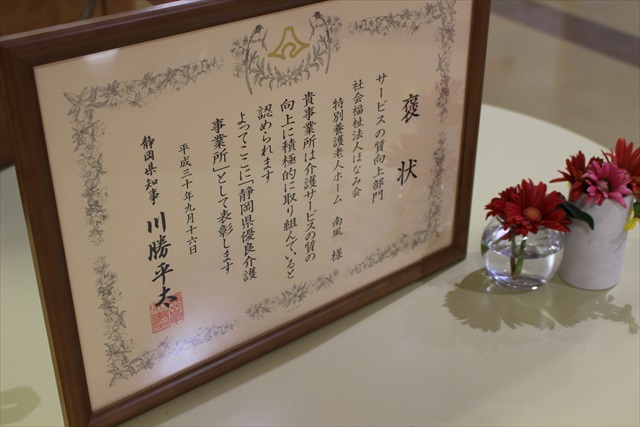 褒状
サービスの質向上部門
社会福祉法人ほなみ会
特別養護老人ホーム 南風 様
貴事業所は介護サービスの質の
向上に積極的に取り組んでいると
認められます
よってここに「静岡県優良介護
事業所」として表彰します
平成三十年九月十六日
静岡県知事 川勝平太